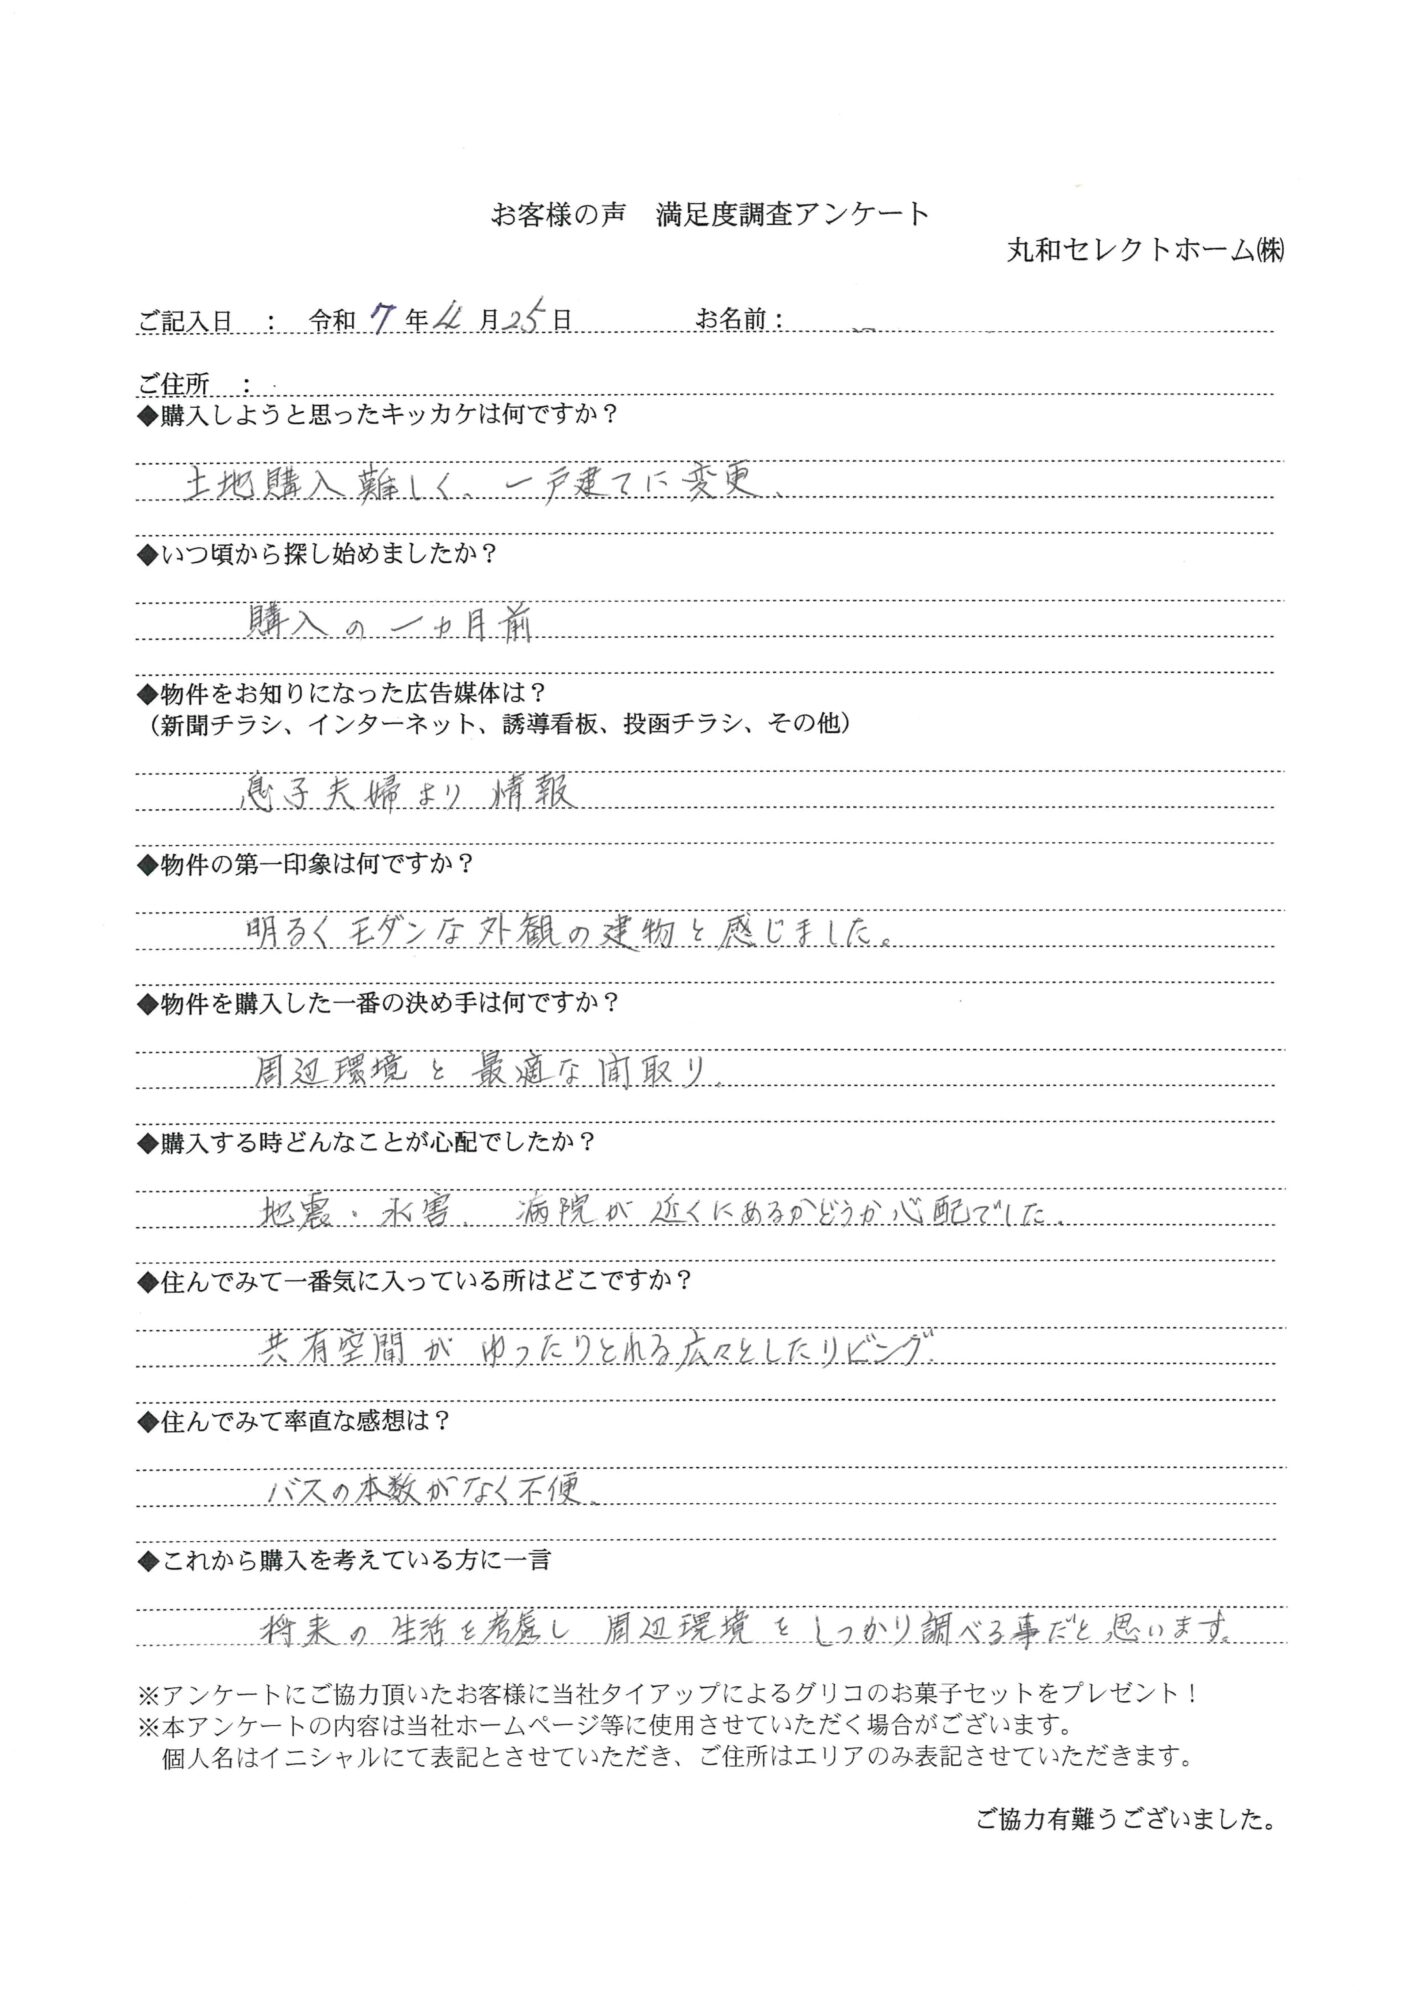 お客様の声　満足度調査アンケート
丸和セレクトホーム㈱
ご記入日　：　令和 7 年 4 月 25 日　　お名前：
ご住所　：
◆購入しようと思ったキッカケは何ですか？
土地購入難しく、一戸建てに変更、
◆いつ頃から探し始めましたか？
購入の一ヵ月前
◆物件をお知りになった広告媒体は？
（新聞チラシ、インターネット、誘導看板、投函チラシ、その他）
息子夫婦より情報
◆物件の第一印象は何ですか？
明るくモダンな外観の建物と感じました。
◆物件を購入した一番の決め手は何ですか？
周辺環境と最適な間取り、
◆購入する時どんなことが心配でしたか？
地震・水害、病院が近くにあるかどうか心配でした、
◆住んでみて一番気に入っている所はどこですか？
共有空間がゆったりとれる広々としたリビング、
◆住んでみて率直な感想は？
バスの本数がなく不便、
◆これから購入を考えている方に一言
将来の生活を考慮し周辺環境をしっかり調べる事だと思います。
※アンケートにご協力頂いたお客様に当社タイアップによるグリコのお菓子セットをプレゼント！
※本アンケートの内容は当社ホームページ等に使用させていただく場合がございます。
個人名はイニシャルにて表記とさせていただき、ご住所はエリアのみ表記させていただきます。
ご協力有難うございました。